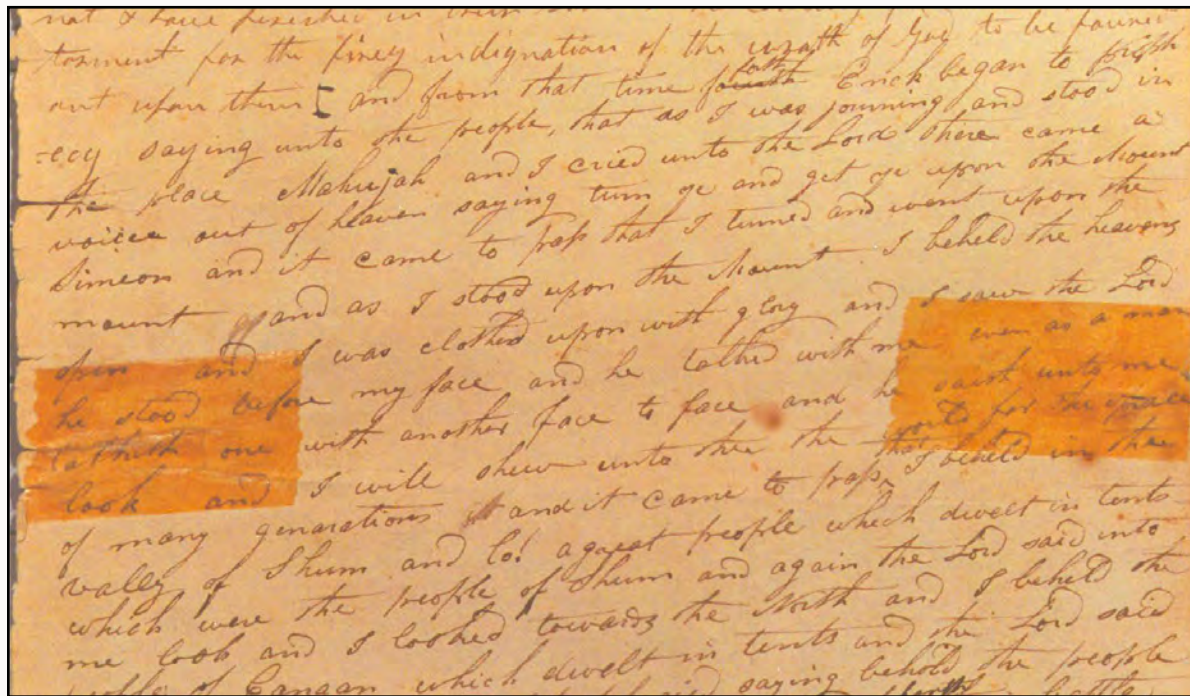 not & have perished in their
torment for the firey indignation of the wrath of God to be poured
out upon them [ and from that time forth Enick began to proph
-ecy saying unto the people, that as I was journing and stood in
the place Mahujah and I cried unto the Lord there came a
voice out of heaven saying turn ye and get ye upon the Mount
Simeon and it came to pass that I turned and went upon the
mount and as I stood upon the Mount I beheld the heavens
open and I was clothed upon with glory and I saw the Lord
he stood before my face and he talked with me even as a man
talketh one with another face to face and he saist unto me
look and I will shew unto thee the world for the space
of many generations and it came to pass that I beheld in the
valley of Shum and lo! a great people which dwelt in tents
which were the people of Shum and again the Lord said unto
me look and I looked towards the North and I beheld the
people of Canaan which dwelt in tents and the Lord said
saying behold the people